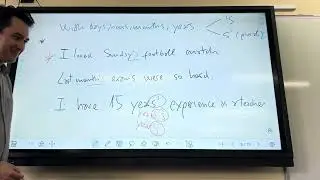 With days/hours/months, years 's
s' (plural)
* I loved Sunday's football match.
Last month's exams were so hard.
I have 15 years' experience as teacher